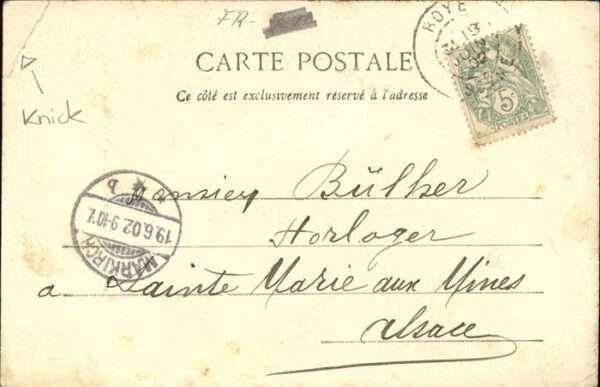 FR-
ROYE
13 JUIN
CARTE POSTALE
Ce côté est exclusivement réservé à l'adresse
5c
POSTES
Knick
Monsieur Bülher
Horloger
à Sainte Marie aux Mines
Alsace
MARKIRCH
19.6.02.9-10V.
* b